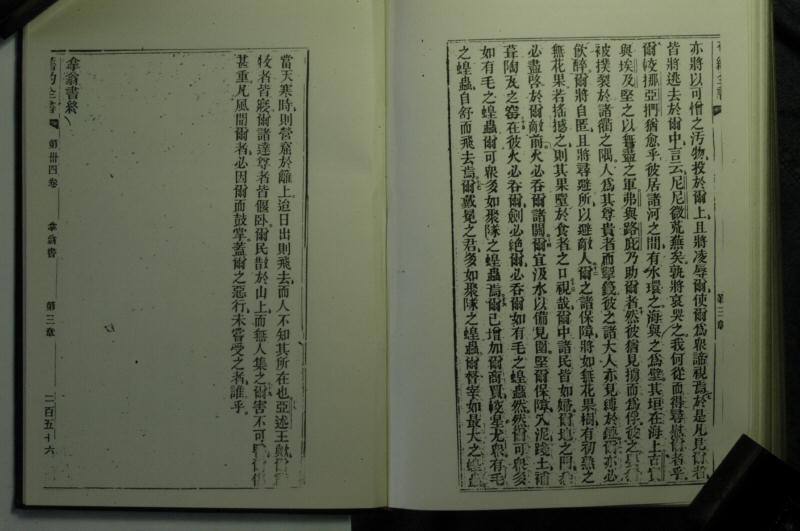 亦將以可憎之汚物投於爾上且將凌辱爾使爾爲衆諦視焉於是凡見爾者
皆將逃去於爾中言云尼尼微荒蕪矣孰將哀哭之我何從而得尋慰爾者乎
爾較挪亞捫猶愈乎彼居諸河之間有水環之海與之爲壁其垣在海上古實
與埃及堅之以無盡之軍弗與路庇乃助爾者然彼猶見擄而爲俘彼之
被撲裂於諸衢之隅人爲其尊貴者而掣籤彼之諸大人亦見縛於鏈爾亦必
飲醉爾將自匿且將尋避所以避敵人爾之諸保障將如無花果樹有初熟之
無花果若搖撼之則其果墮於食者之口視哉爾中諸民皆如婦爾地之門
必盡啓於爾敵前火必吞爾諸關爾宜汲水以備見圍堅爾保障入泥踐土補
葺陶瓦之窰在彼火必吞爾劍必絕爾必吞爾如有毛之蝗蟲然然爾可衆多
如有毛之蝗蟲爾可衆多如聚隊之蝗蟲焉爾已增加爾商賈較星尤衆有毛
之蝗蟲自舒而飛去焉爾戴冕之君多如聚隊之蝗蟲爾督宰如最大之蝗蟲
第三章
當天寒時則營窟於籬上迨日出則飛去而人不知其所在也亞述王歟爾
牧者皆寢爾諸達尊者皆偃卧爾民散於山上而無人集之爾害不可
甚重凡風聞爾者必因爾而鼓掌蓋爾之惡行未嘗受之者誰乎
拿翁書終
舊約全書 第卅四卷 拿翁書 第三章 二百五十六